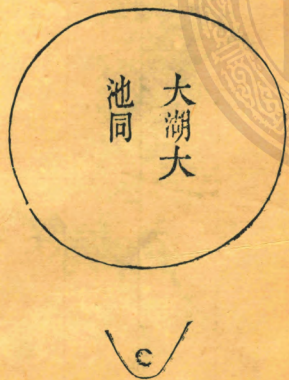 大湖大
池同